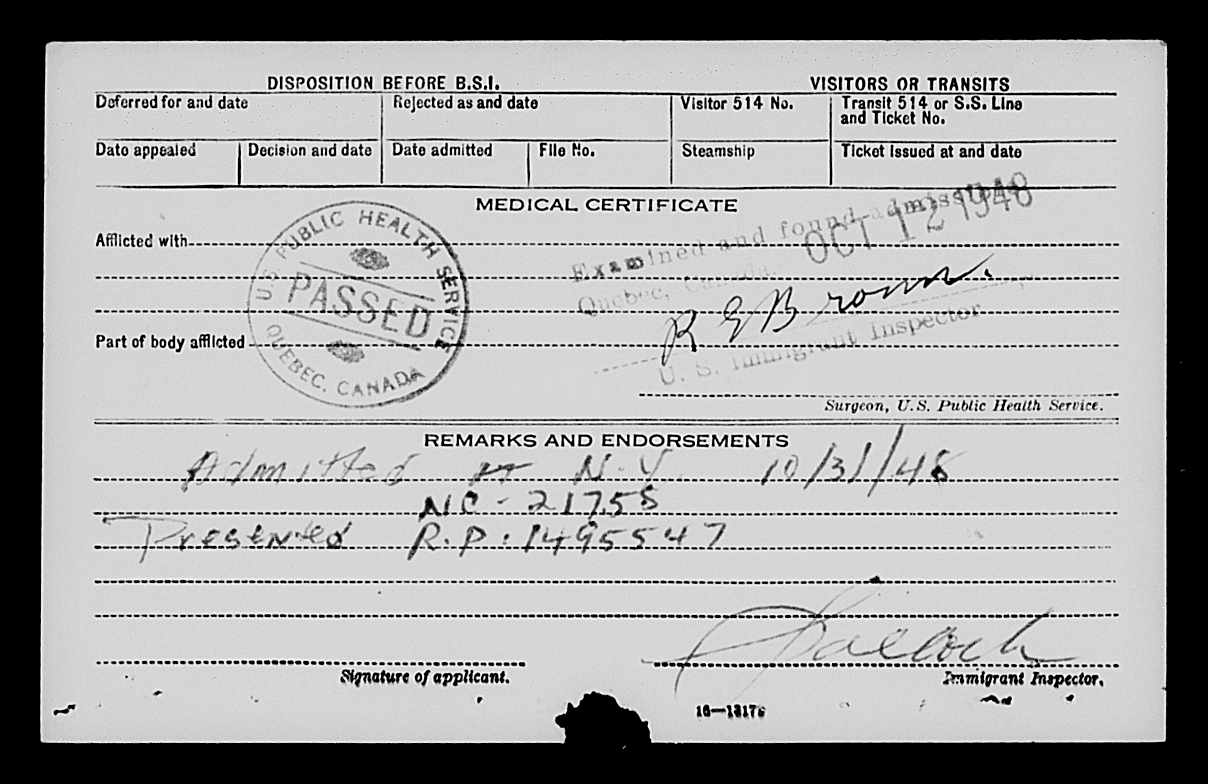 DISPOSITION BEFORE B.S.I. VISITORS OR TRANSITS
Deferred for and date Rejected as and date Visitor 514 No. Transit 514 or S.S. Line and Ticket No.
Date appealed Decision and date Date admitted File No. Steamship Ticket issued at and date
MEDICAL CERTIFICATE
Afflicted with
Part of body afflicted
U.S. PUBLIC HEALTH SERVICE
PASSED
QUEBEC, CANADA
Examined and found admissible
OCT 12 1948
Quebec, Canada.
R E Brown.
U. S. Immigrant Inspector
Surgeon, U.S. Public Health Service.
REMARKS AND ENDORSEMENTS
Admitted at N.Y. 10/31/48
NC - 21758
Presented R.P. 1495547
Signature of applicant. Immigrant Inspector.
16—13176